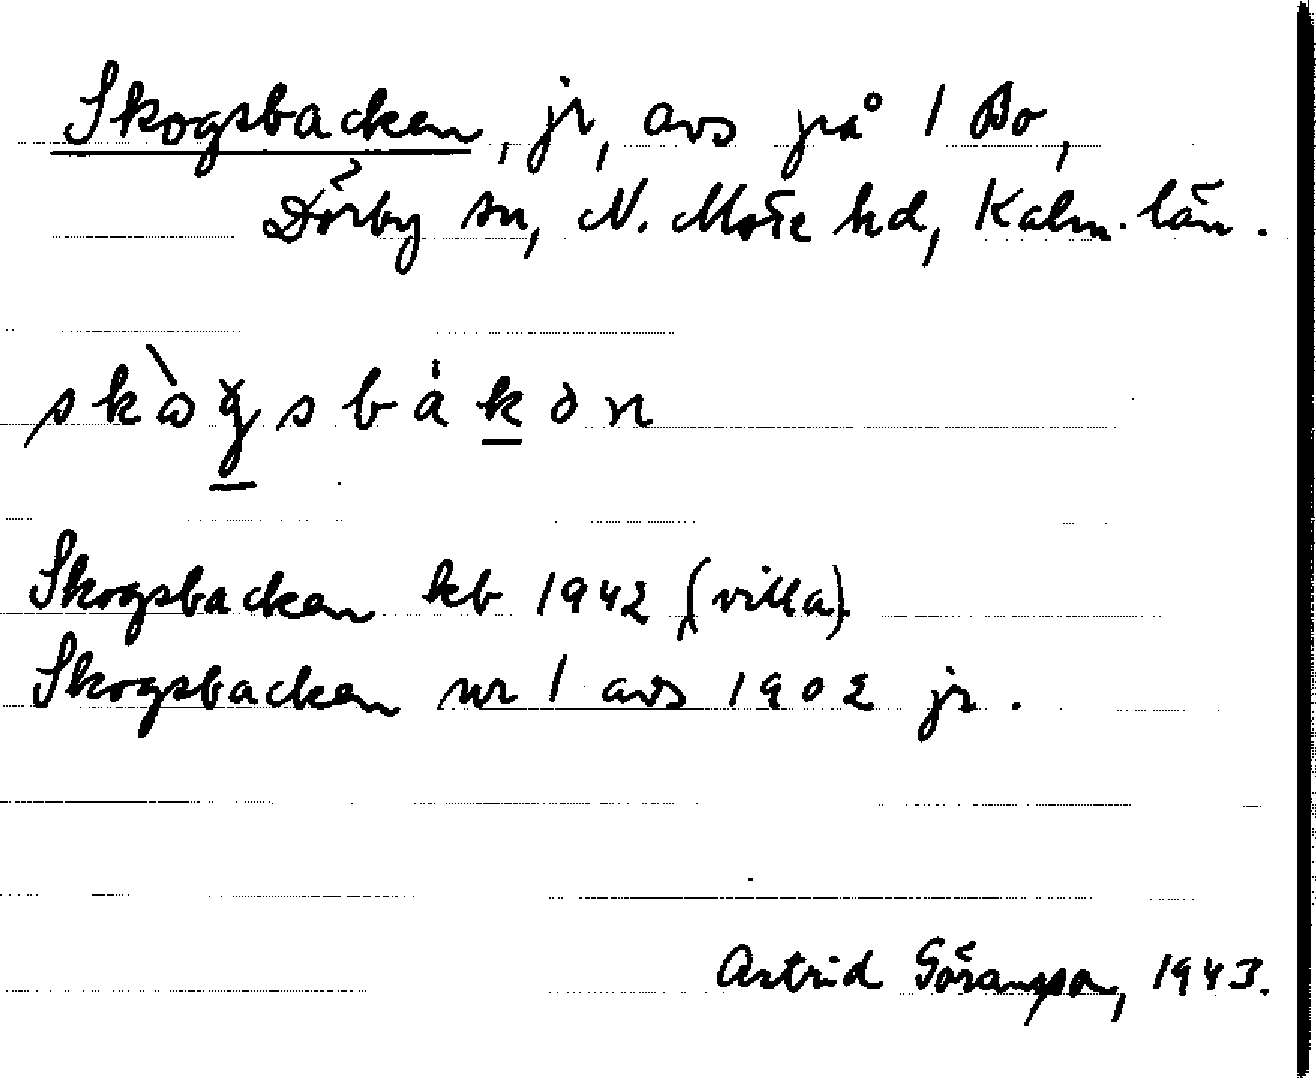 Skogsbacken, jr, avs på 1 Bo,
Dörby sn, N. Möre hd, Kalm. län.
skògsbákən
Skogsbacken kb 1942 (villa).
Skogsbacken nr 1 avs 1902 jr.
Astrid Göransson, 1943.